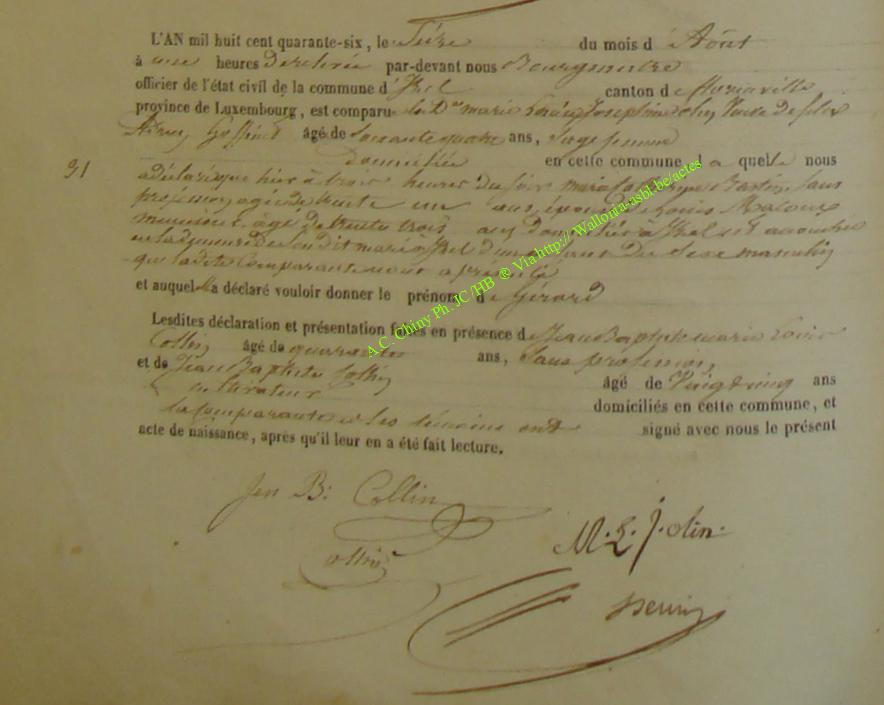 L'AN mil huit cent quarante-six, le Seize du mois d'Août
à une heures de relevée par-devant nous Bourgmestre
officier de l'état civil de la commune d'Izel canton de Florenville
province de Luxembourg, est comparu la De marie Louise Josephine Veuve de
âgé de Soixante quatre ans, Sage femme
91 domiciliée en cette commune, laquelle nous
a déclaré que hier à trois heures du soir marie Bastin, Sans
profession, agée de trente un ans, épouse de Louis
menuisier, âgé de trente trois ans domicilié à Izel est accouchée
en la demeure de son dit mari à Izel d'un enfant du Sexe masculin
que la dite Comparante nous a présenté
et auquel elle a déclaré vouloir donner le prénom de Gérard
Lesdites déclaration et présentation faites en présence de Jean Baptiste marie Louis
Collin, âgé de quarante ans, Sans profession,
et de Jean Baptiste Collin âgé de Vingt cinq ans
cultivateur domiciliés en cette commune, et
la Comparante et les témoins ont signé avec nous le présent
acte de naissance, après qu'il leur en a été fait lecture.
A.C. Chiny Ph. JC /HB ® Via http:// Wallonia-asbl.be/actes
Jen B: Collin
M. L. J. olin.
Collin